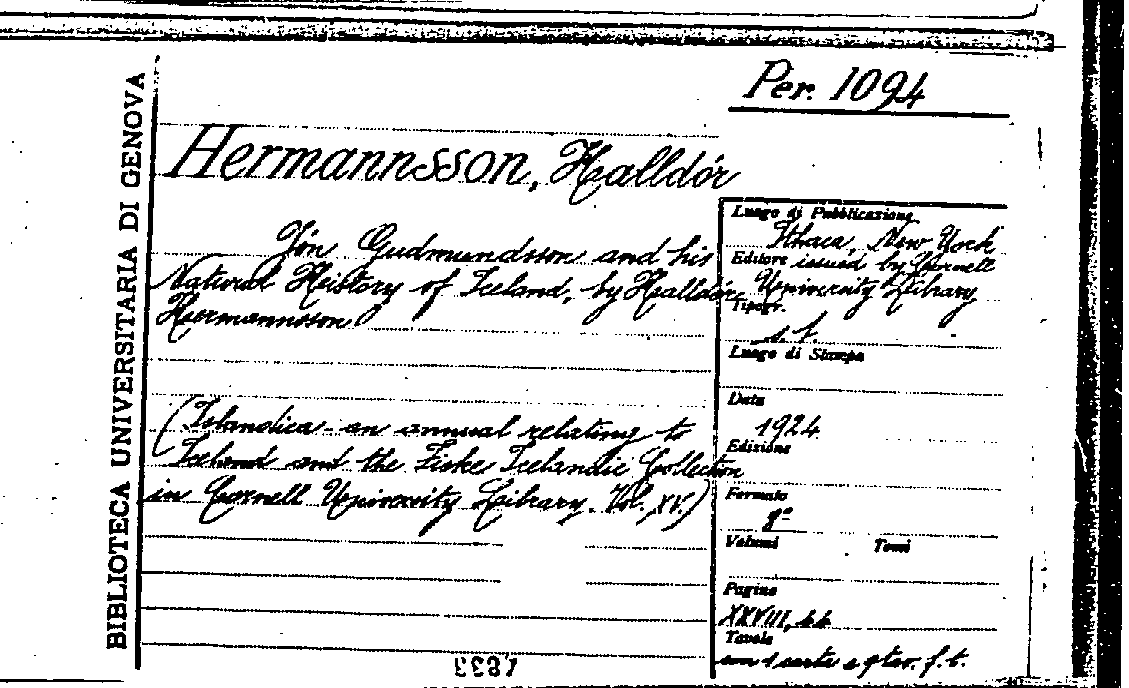 BIBLIOTECA UNIVERSITARIA DI GENOVA
Per. 1094
Hermannsson, Halldór
Jón Gudmundsson and his
Natural History of Iceland, by Halldór
Hermannsson
(Islandica - an annual relating to
Iceland and the Fiske Icelandic Collection
in Cornell University Library. Vol. XV.)
Luogo di Pubblicazione
Ithaca, New York
Editore issued by Cornell
University Library
Tipogr.
s. t.
Luogo di Stampa
Data
1924
Edizione
Formato
8º
Volumi Tomi
Pagine
XXVIII,
Tavole
con 1 carta e tav. f. t.